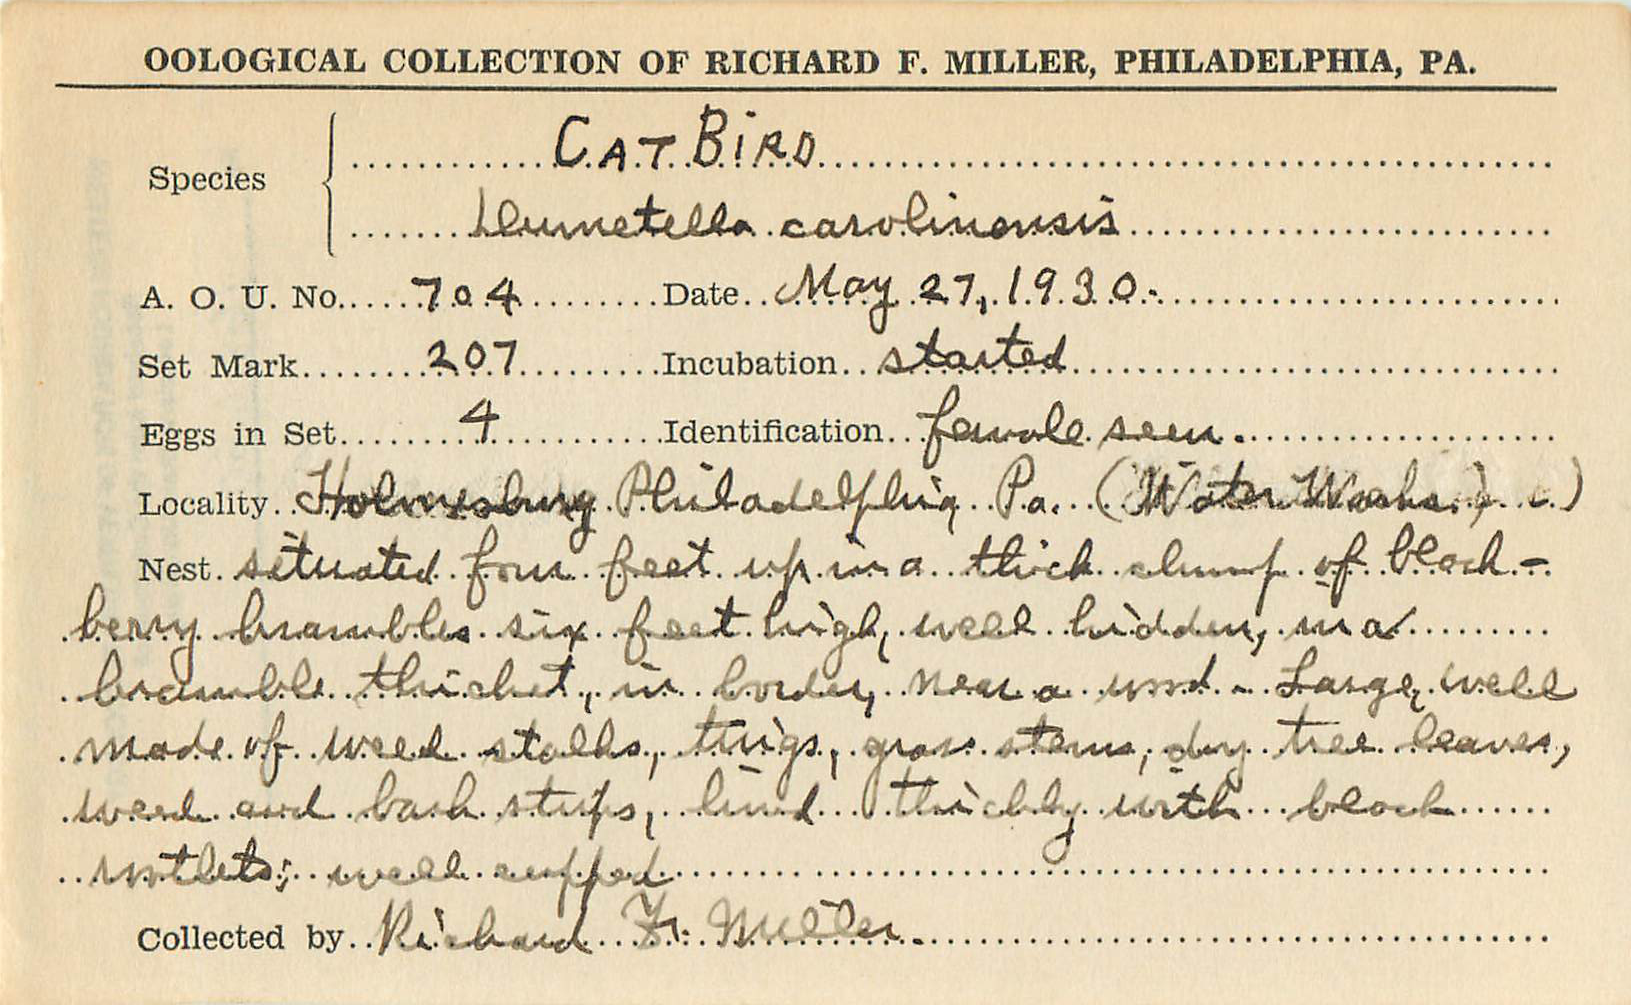 OOLOGICAL COLLECTION OF RICHARD F. MILLER, PHILADELPHIA, PA.
Species
CAT BIRD
Dumetella carolinensis
A. O. U. No. 704 Date May 27, 1930.
Set Mark 207 Incubation started
Eggs in Set 4 Identification female seen.
Locality Holmesburg Philadelphia, Pa. (Water Works
Nest situated four feet up in a thick clump of black-
berry brambles six feet high, well hidden, in a
bramble thicket, in border, near a wood - Large, well
made of weed stalks, twigs, grass stems, dry tree leaves,
weed and bark strips, lined thickly with black
rootlets; well cupped
Collected by Richard F. Miller.